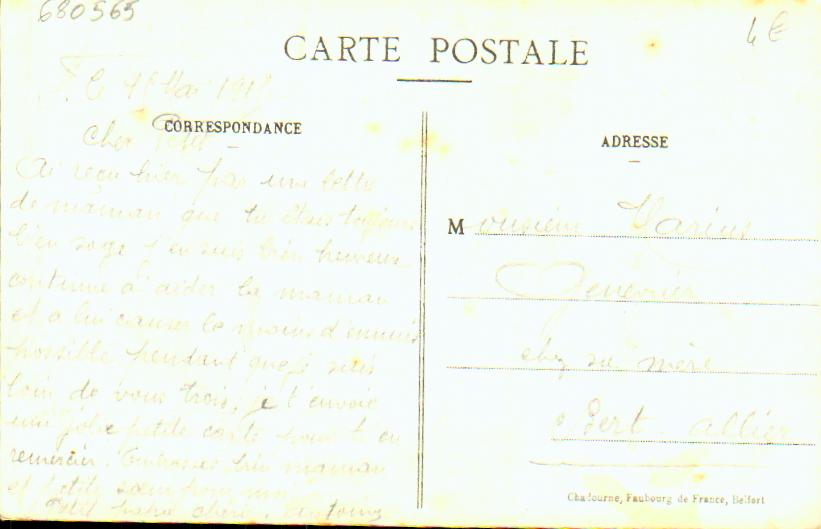 680565
4€
CARTE POSTALE
Le 15 Mai 191
CORRESPONDANCE
Cher Petit
Ai reçu hier par une lettre
de maman que tu étais toujours
bien sage j'en suis bien heureux
continue à aider la maman
et a lui causer le moins d'ennuis
possible pendant que je suis
loin de vous trois, je t'envoie
une jolie petite carte pour t'en
remercier. Embrasses bien maman
et petite sœur pour moi
Petit papa chéri, Antoine
ADRESSE
Monsieur Marius
Genevrier
chez sa mère
Bert Allier
Chadourne, Faubourg de France, Belfort